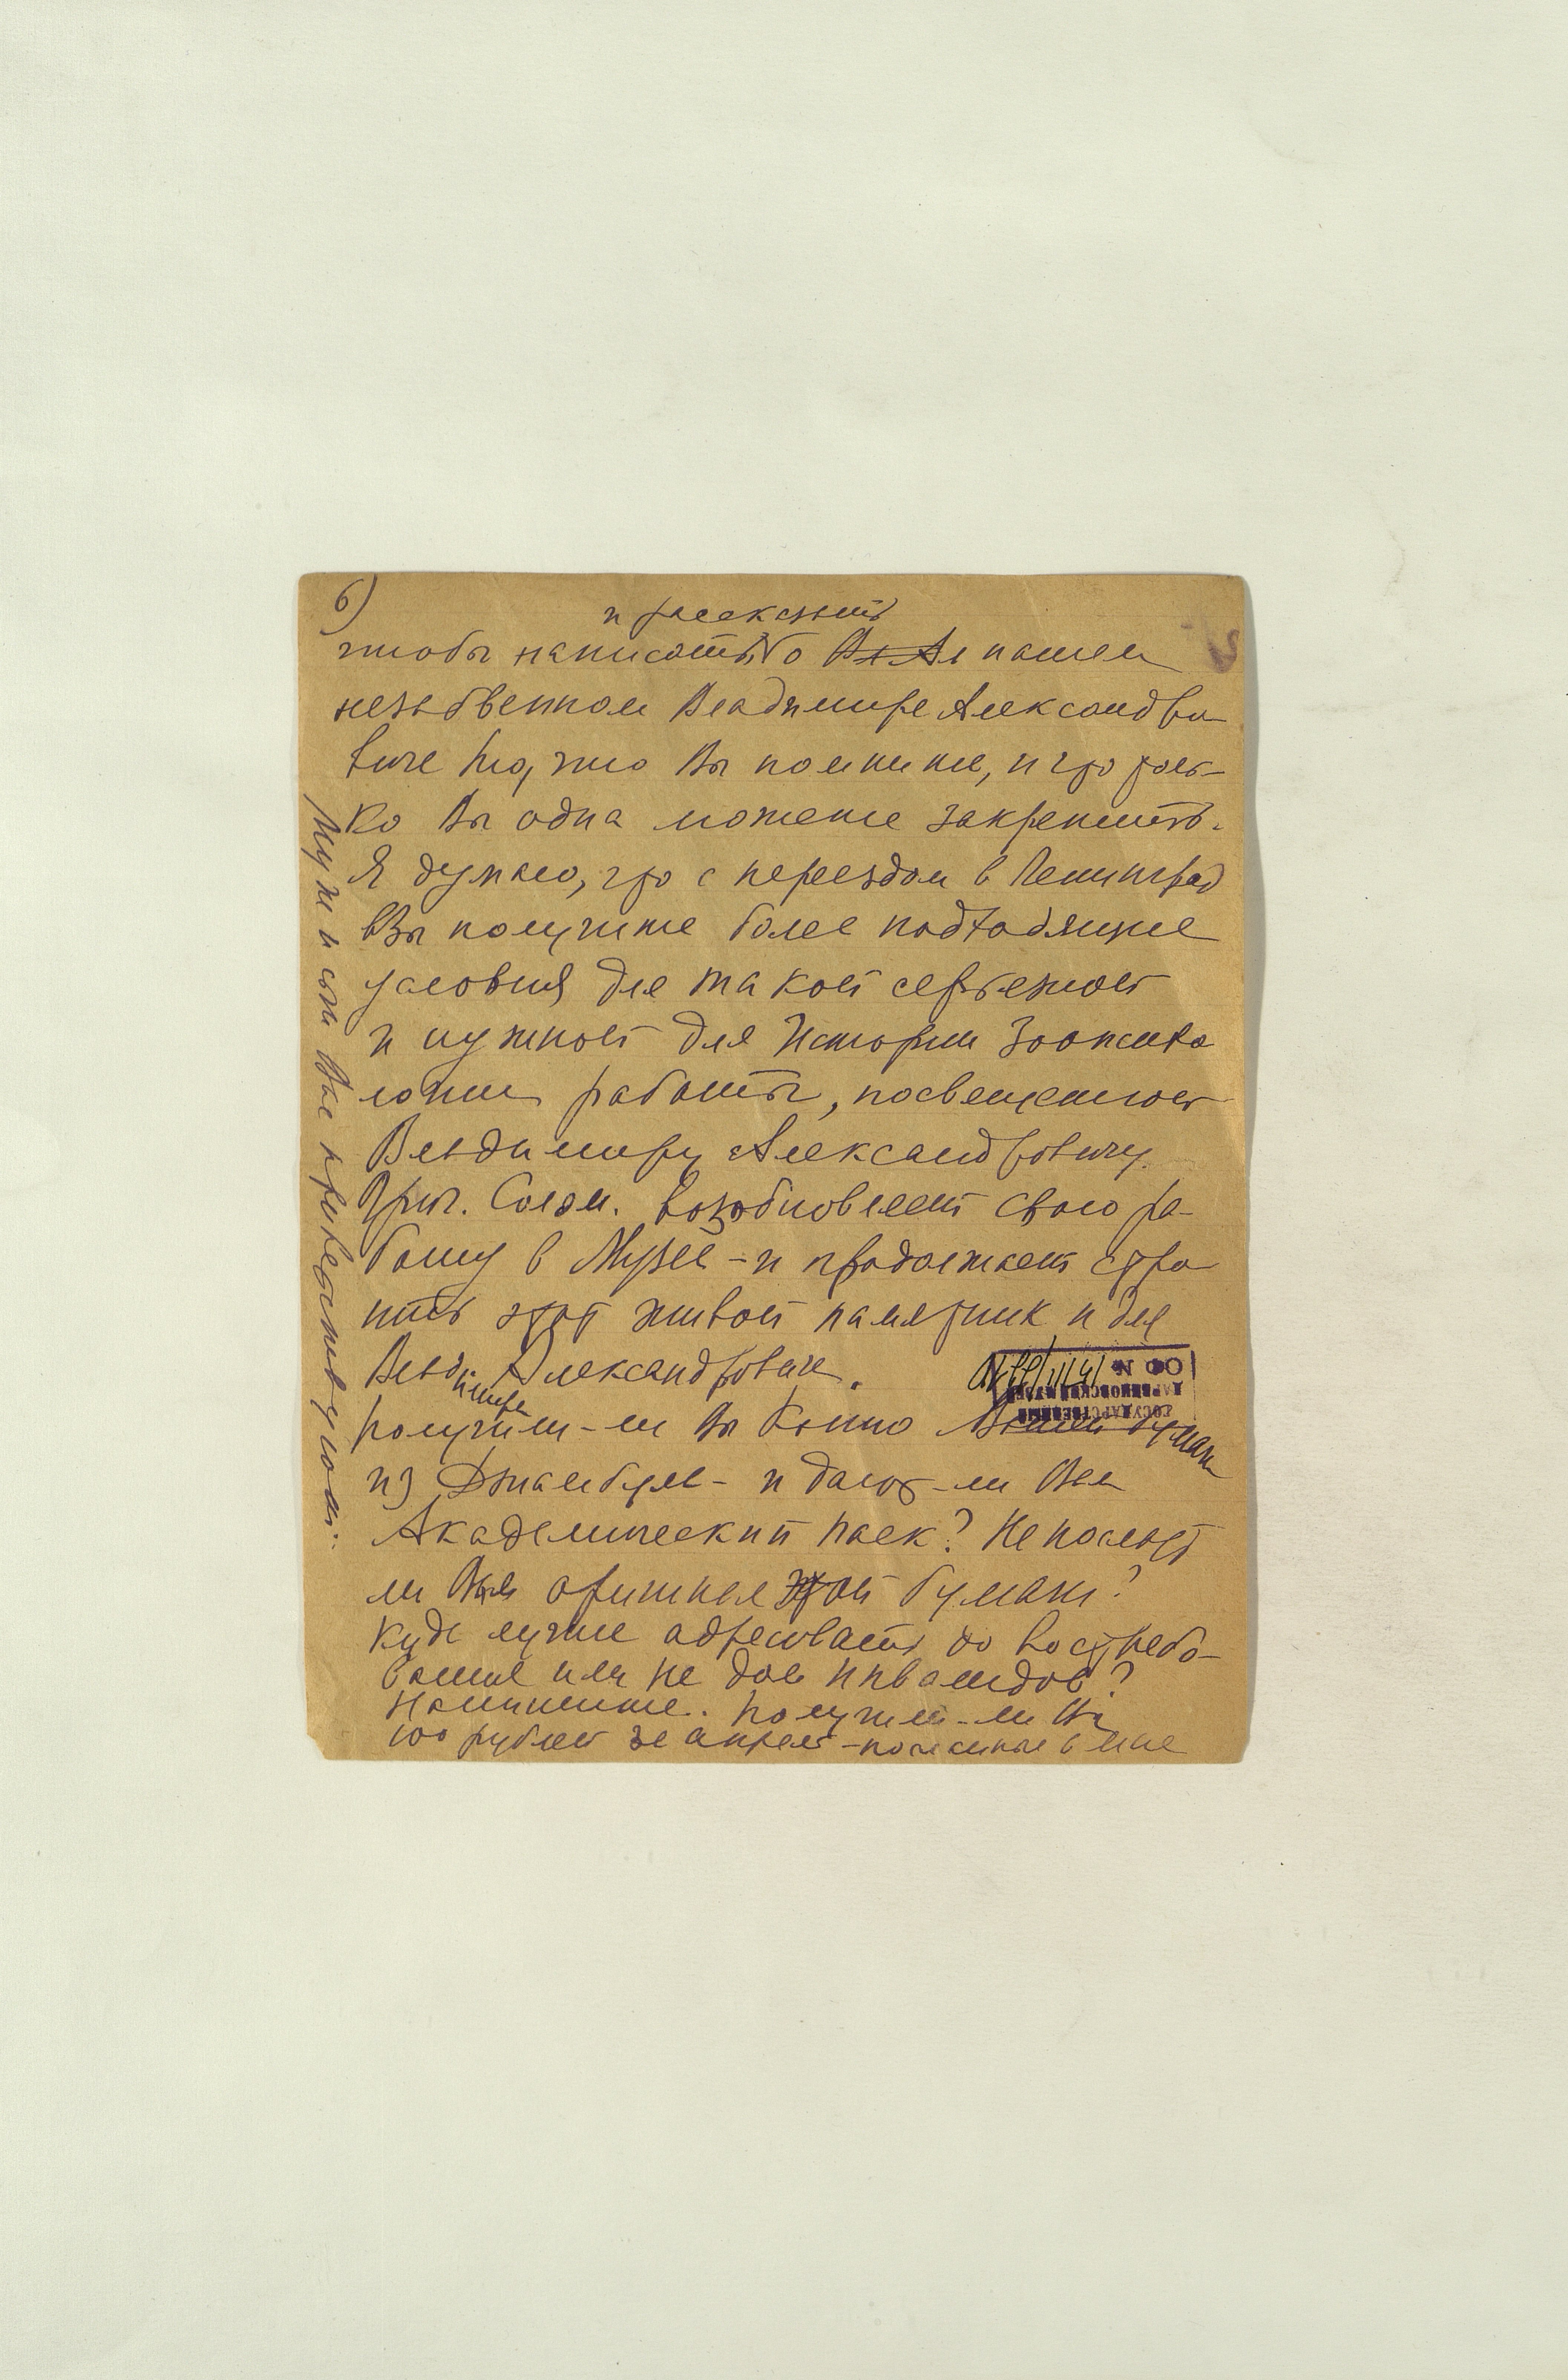 6)
и рассказать
чтобы написать о Вл Ал нашем
незабвенном Владимире Александро
виче то, что Вы помните, и что толь-
ко Вы одна можете закрепить.
Я думаю, что с переездом в Ленинград
Вы получите более подходящие
условия для такой серьезной
и нужной для Истории Зоопсихо
логии работы, посвещенной
Владимиру Александровичу.
Григ. Солом. возобновляет свою ра-
боту в Музее - и продолжает стро
ить этот живой памятник и для
Владимира Александровича.
Получили-ли Вы копию Вашей бумаги
из Джамбула - и дают-ли Вам
Академический паек? Не послать
ли Вам оригинал этой бумаги?
Куда лучше адресовать до востребо-
вания или на дом инвалидов?
Напишите. Получили-ли Вы
100 рублей за апрель - посланные в мае
Муж и сын Вас приветствуют.
ГОСУДАРСТВЕННЫЙ
ДАРВИНОВСКИЙ МУЗЕЙ
ОФ №